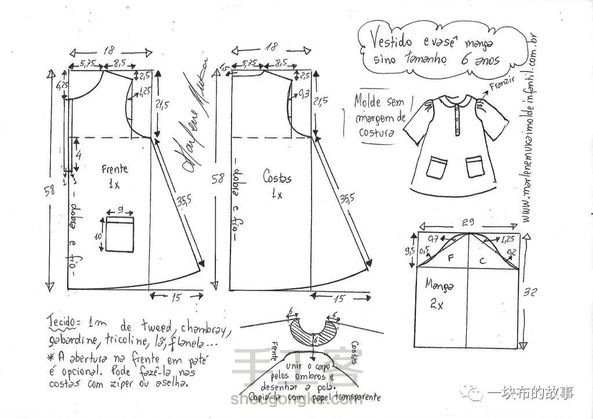 Vestido evasê manga
sino tamanho 6 anos
Molde sem
margem de
costura
Franzir
www.marlenemukaimoldeinfantil.com.br
Marlene Mukai
18
5,75
8,5
2,5
6,25
1,25
21,5
4
1
1
Frente
1x
58
35,5
9
10
- dobra e fio -
15
18
5,75
8,5
2,5
0,3
21,5
Costas
1x
58
35,5
- dobra e fio -
15
29
9,5
0,7
1,25
0,5
0,2
F
C
Manga
2x
32
Tecido = 1m de tweed, chambray,
gabardine, tricoline, lã, flanela...
* A abertura na frente em patê
é opcional. Pode fazê-la nas
costas com zíper ou aselha.
6
6
6
Frente
Costas
unir o corpo
pelos ombros e
desenhar a gola.
Copiá-la com papel transparente
手工客
shougongke.com
一块布的故事